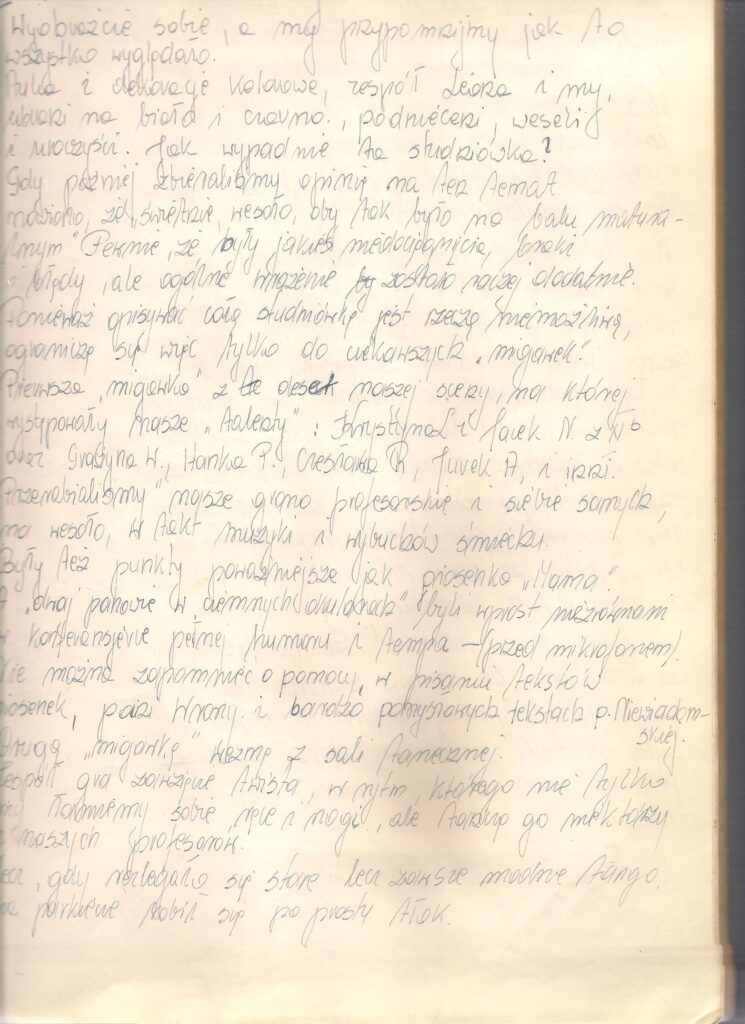 Wyobraźcie sobie, a my przypomnijmy jak to
wszystko wyglądało.
i dekoracje kolorowe, zespół i my,
na biało i czarno, podnieceni, weseli
i uroczyści. Jak wypadnie ta studniówka?
Gdy później zbieraliśmy opinię na ten temat
mówiono, że „świetnie, wesoło, oby tak było na balu matural-
nym" Pewnie, że były jakieś niedociągnięcia, braki
i błędy, ale ogólne wrażenie zostało raczej dodatnie.
Ponieważ opisywać całą studniówkę jest rzeczą niemożliwą,
ograniczę się więc tylko do ciekawszych „migawek".
Pierwsza „migawka" z desek naszej sceny, na której
występowały nasze „talenty": Krystyna L i Jacek N. z XIb
oraz Grażyna W., Hanka P., Czesława R, Jurek A, i inni.
„Przerabialiśmy" nasze grono profesorskie i siebie samych,
na wesoło, w takt muzyki i wybuchów śmiechu.
Były też punkty poważniejsze jak piosenka „Mama".
A „dwaj panowie w ciemnych okularach" byli wprost niezrównani
w konferansjerce pełnej humoru i tempa – (przed mikrofonem).
Nie można zapomnieć o pomocy, w pisaniu tekstów
piosenek, pani Wrony i bardzo pomysłowych tekstach p. Niewiadom-
skiej.
Drugą „migawkę" wezmę z sali tanecznej.
Zespół gra zawzięcie twista, w rytm, którego nie tylko
my łamiemy sobie „ręce i nogi", ale tańczą go niektórzy
z naszych profesorów.
Lecz, gdy rozlegało się stare lecz zawsze modne tango,
na parkiecie robił się po prostu tłok.